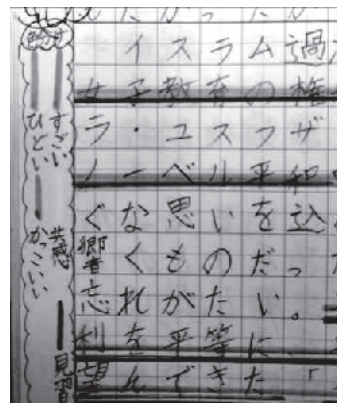 たかったか
イスラム過
女子教育の権
ラ・ユスフザ
ノーベル平和
ぐな思いを込
くものだっ
忘れがたい。
利を平等に
望んできた「
すごい
ひどい
共感
かっこいい
見習